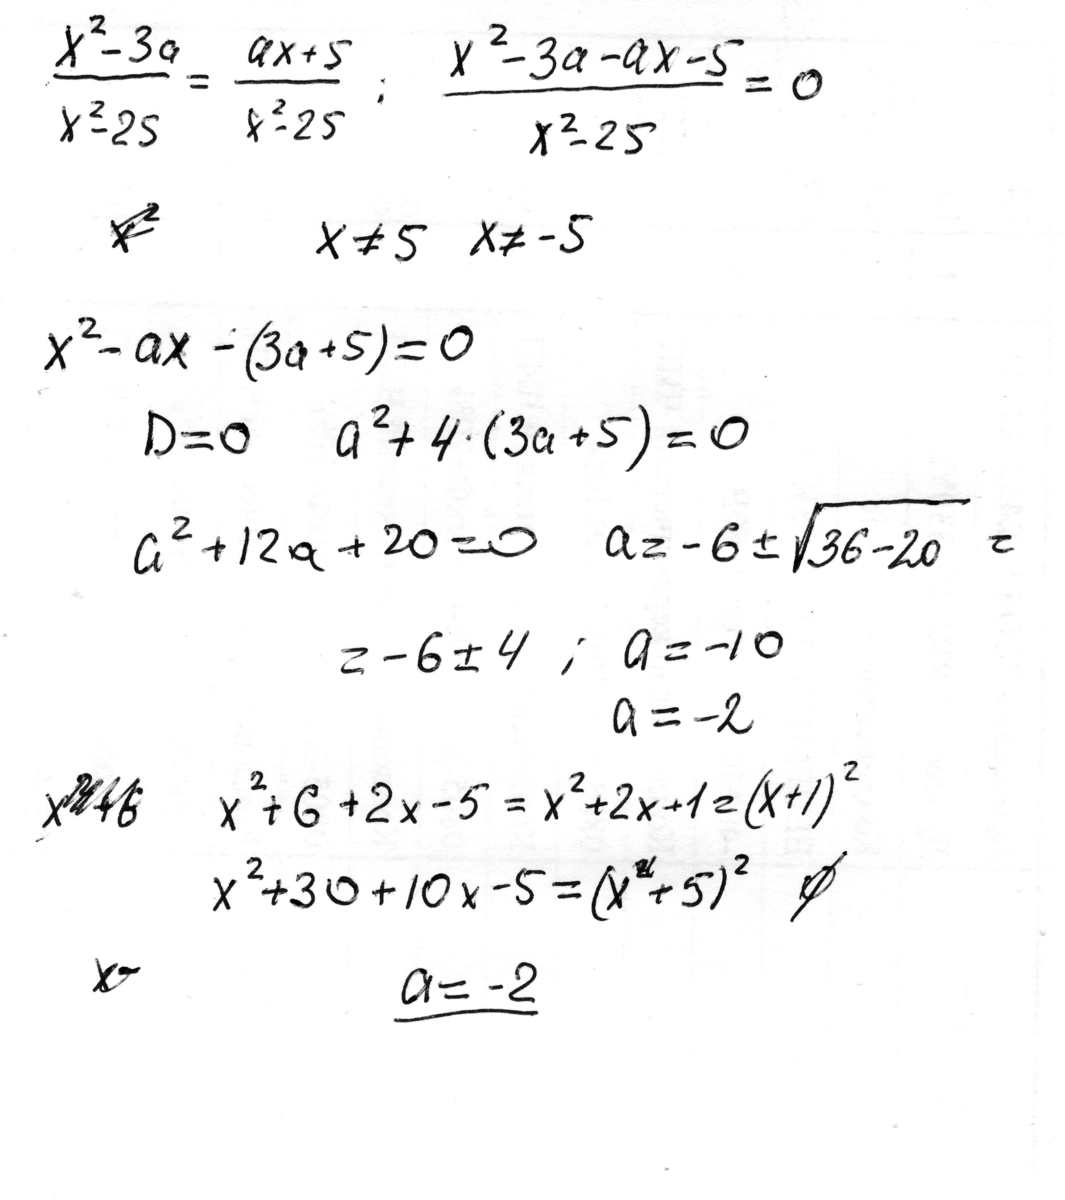 (x²-3a)/(x²-25) = (ax+5)/(x²-25) ; (x²-3a-ax-5)/(x²-25) = 0
x² x≠5 x≠-5
x²-ax-(3a+5)=0
D=0 a²+4·(3a+5)=0
a²+12a+20=0 a=-6±√(36-20) =
=-6±4 ; a=-10
a=-2
x²+6+2x-5=x²+2x+1=(x+1)²
x²+30+10x-5=(x+5)² ∅
x
a=-2